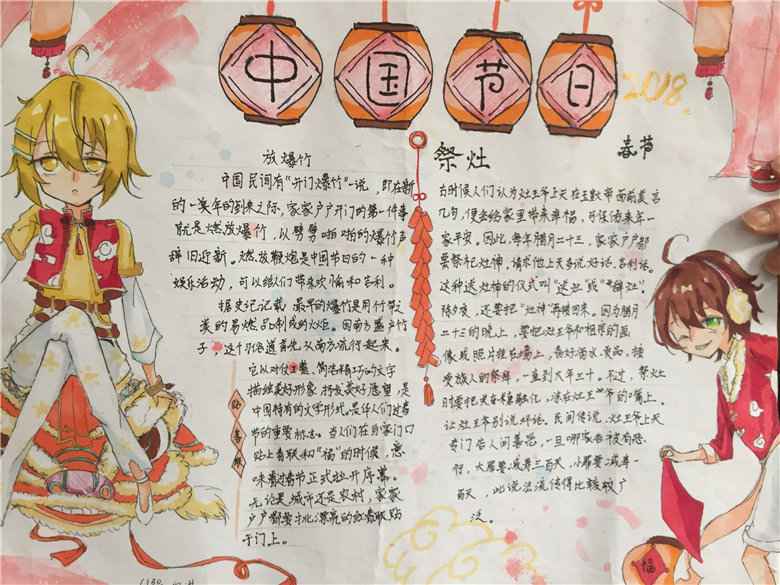 中国节日
2018
春节
放爆竹
中国民间有"开门爆竹"一说，即在新
的一年的到来之际，家家户户开门的第一件事
就是燃放爆竹，以劈劈啪啪的爆竹声
辞旧迎新。燃放鞭炮是中国节日的一种
娱乐活动，可以给人们带来欢愉和吉利。
据史记记载，最早的爆竹是用竹
类的易燃品制成的火炬。因南方盛产竹
子，这个习俗道首先从南方流行起来。
贴春联
它以对仗工整、简洁精巧的文字
描绘美好形象，抒发美好愿望，是
中国特有的文学形式，是华人们过春
节的重要标志。当人们在自家门口
贴上春联和"福"的时候，意
味着过春节正式拉开序幕。
无论是城市还是农村，家家
户户都要挑漂亮的红春联贴
于门上。
祭灶
古时候人们认为灶王爷上天在玉帝面前美言
几句，便会给家里带来幸福，可保佑来年一
家平安。因此，每年腊月二十三，家家户户都
要祭祀灶神，请求他上天多说好话、吉利话。
这种送灶神的仪式叫"送灶"或"辞灶"。
除夕夜，还要把"灶神"再接回来。因为腊月
二十三的晚上，要把灶王爷和祖辈的画
像或照片挂在墙上，备好酒水、黄面，接
受族人的祭拜，一直到大年三十。不过，祭灶
时要把关东糖融化，涂在灶王爷的嘴上，
让灶王爷别说坏话。民间传说，灶王爷上天
专门告人间善恶，一旦哪家被告恶
行，大罪要减寿三百天，小罪要减寿一
百天，此说法流传得比较较广
泛。
福